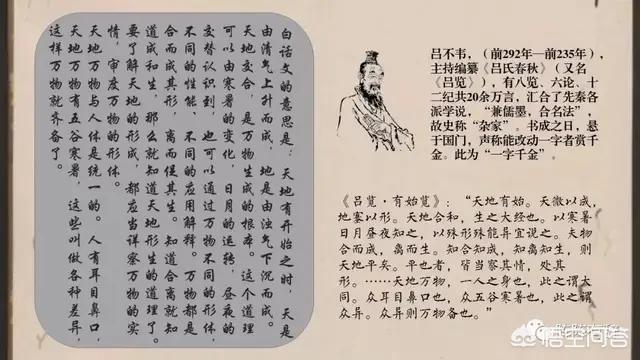 白话文的意思是：天地有开始之时，天是
由清气上升而成，地是由浊气下沉而成。
天地交合，是万物生成的根本。这个道理
可以由寒暑的变化，日月的运转，昼夜的
交替认识到，也可以通过万物不同的形体，
不同的性能、不同的应用解释。万物都是
合而成其形，离而促其生。知道合离就知
道成和生，那么就知道天地形生的道理了。
要了解天地的形成，都应当详察万物的实
情，审度万物的形体。
天地万物与人体是统一的。人有耳目鼻口，
天地万物有五谷寒暑，这些叫做各种差异，
这样万物就齐备了。
吕不韦，（前292年—前235年），
主持编纂《吕氏春秋》（又名
《吕览》），有八览、六论、十
二纪共20余万言，汇合了先秦各
派学说，“兼儒墨，合名法”，
故史称“杂家”。书成之日，悬
于国门，声称能改动一字者赏千
金。此为“一字千金”。
《吕览·有始览》：“天地有始。天微以成，
地塞以形。天地合和，生之大经也。以寒暑
日月昼夜知之，以殊形殊能异宜说之。夫物
合而成，离而生。知合知成，知离知生，则
天地平矣。平也者，皆当察其情，处其
形。……天地万物，一人之身也，此之谓大
同。众耳目鼻口也，众五谷寒暑也，此之谓
众异。众异则万物备也。”
悟空问答